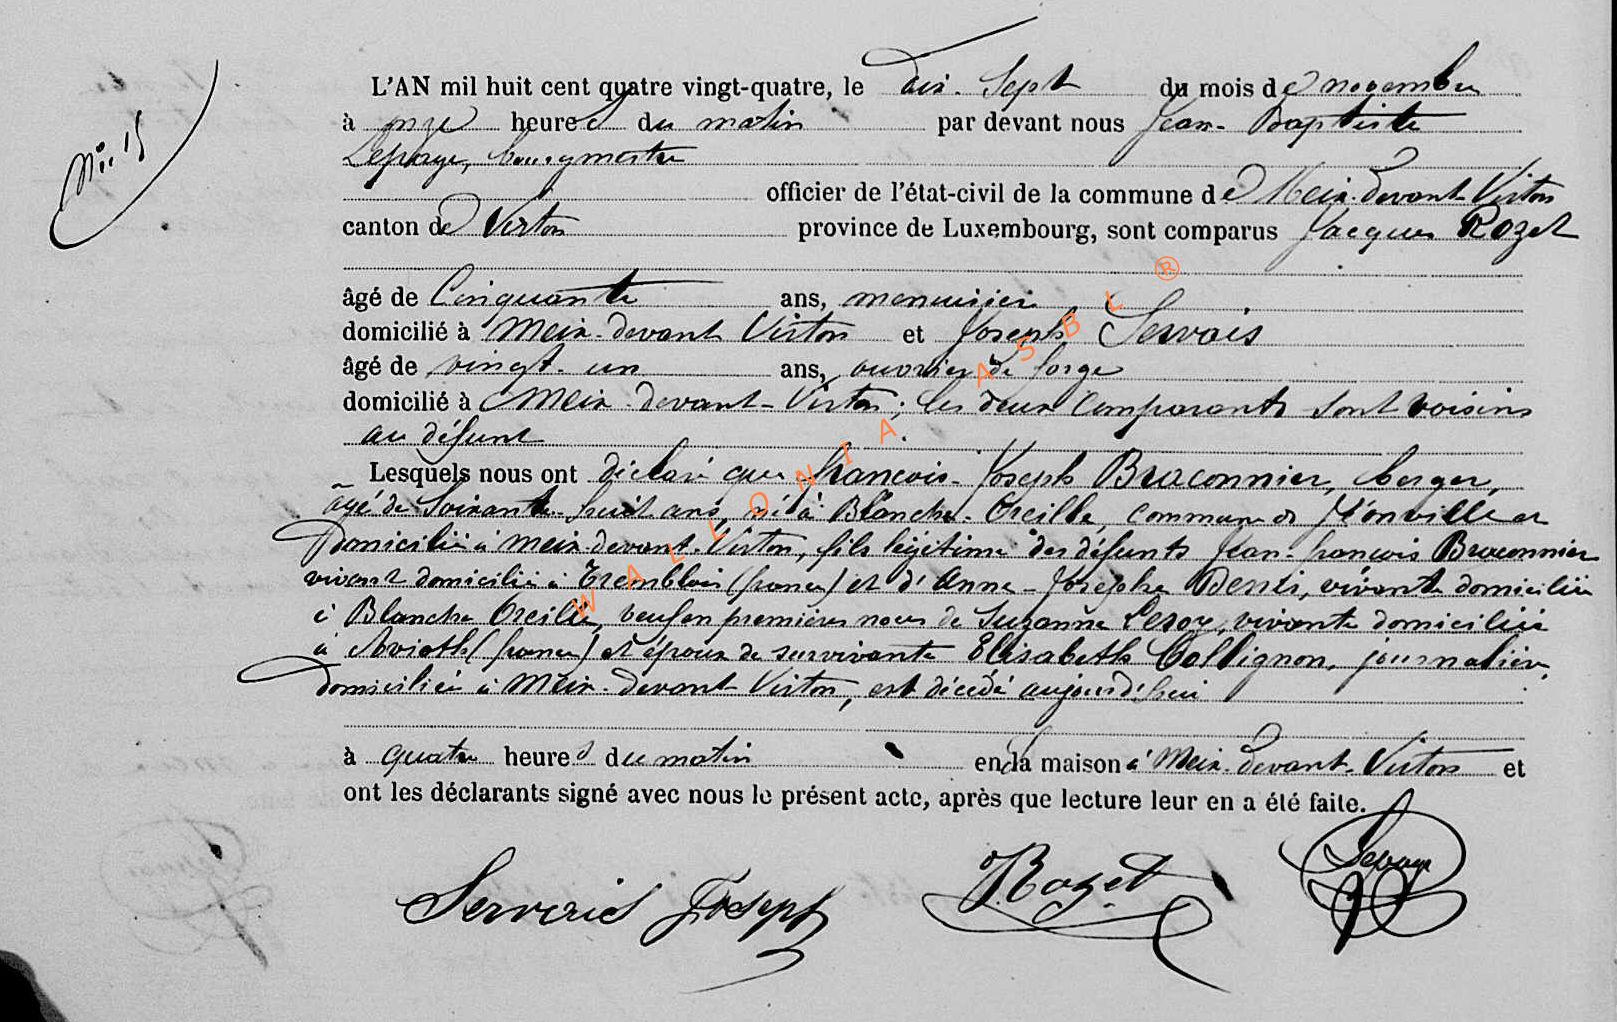 N° 15
L'AN mil huit cent quatre vingt-quatre, le dix-sept du mois de novembre
à onze heures du matin par devant nous Jean-Baptiste
Lepage, bourgmestre
officier de l'état-civil de la commune de Meix-devant-Virton
canton de Virton province de Luxembourg, sont comparus Jacques Rozet
âgé de Cinquante ans, menuisier
domicilié à Meix-devant Virton et Joseph Servais
âgé de vingt-un ans, ouvrier de forge
domicilié à Meix-devant-Virton; les deux comparants sont voisins
au défunt
Lesquels nous ont déclaré que françois-Joseph Braconnier, berger,
âgé de Soixante-huit ans, né à Blanche-Oreille, commune de et
domicilié à Meix-devant-Virton, fils légitime des défunts Jean-françois Braconnier
vivant domicilié à Tremblois (france) et d'Anne-Josephe vivante domiciliée
à Blanche Oreille, veuf en premières noces de Suzanne Leroy, vivante domiciliée
à Avioth (france) et époux de survivante Elisabeth Collignon, journalière,
domiciliée à Meix-devant Virton, est décédé aujourd'hui
à quatre heures du matin en la maison à Meix-devant-Virton et
ont les déclarants signé avec nous le présent acte, après que lecture leur en a été faite.
Servais Joseph J. Rozet Lepage
WALLONIA ASBL ®